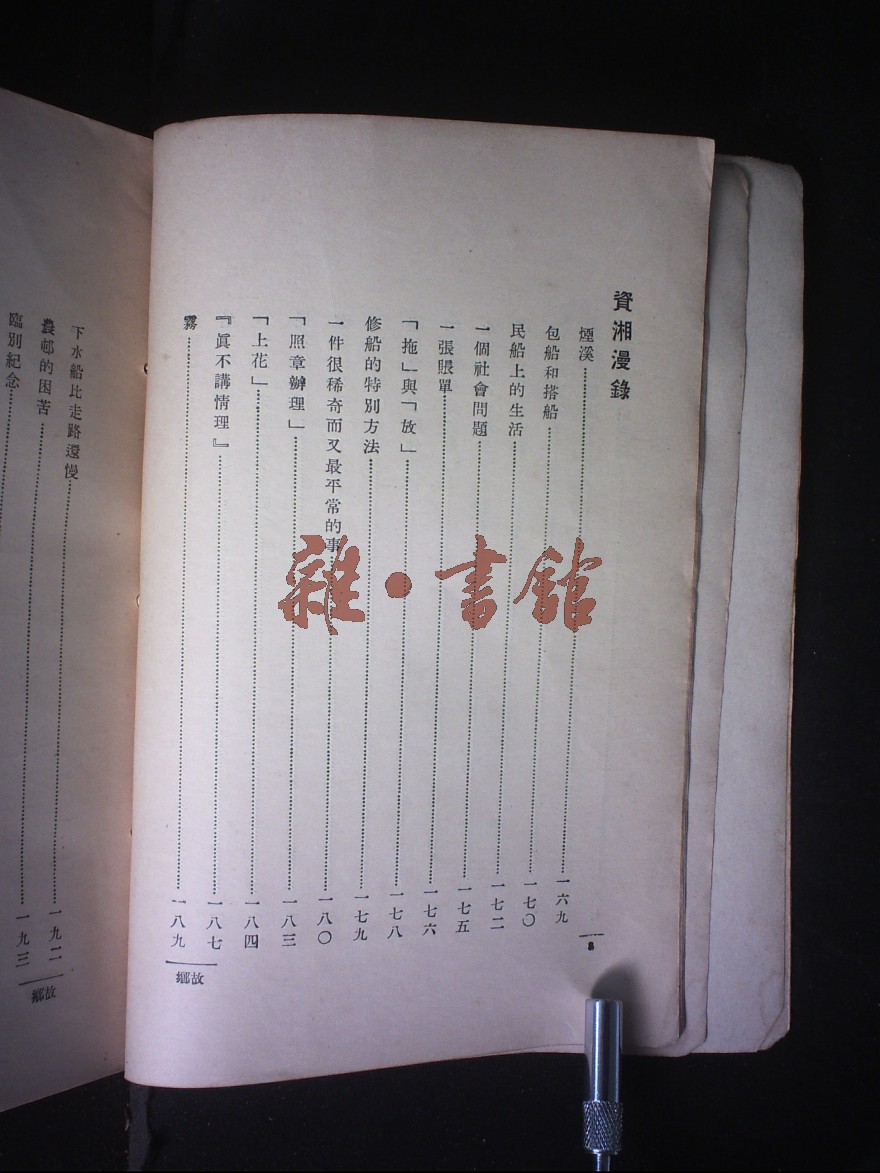 資湘漫錄
煙溪 一六九
包船和搭船 一七〇
民船上的生活 一七二
一個社會問題 一七五
一張賬單 一七六
「拖」與「放」 一七八
修船的特別方法 一七九
一件很稀奇而又最平常的事 一八〇
「照章辦理」 一八三
「上花」 一八四
『眞不講情理』 一八七
霧 一八九
8
故鄉
下水船比走路還慢 一九二
農邨的困苦 一九三
臨別紀念
故鄉
雜·書館